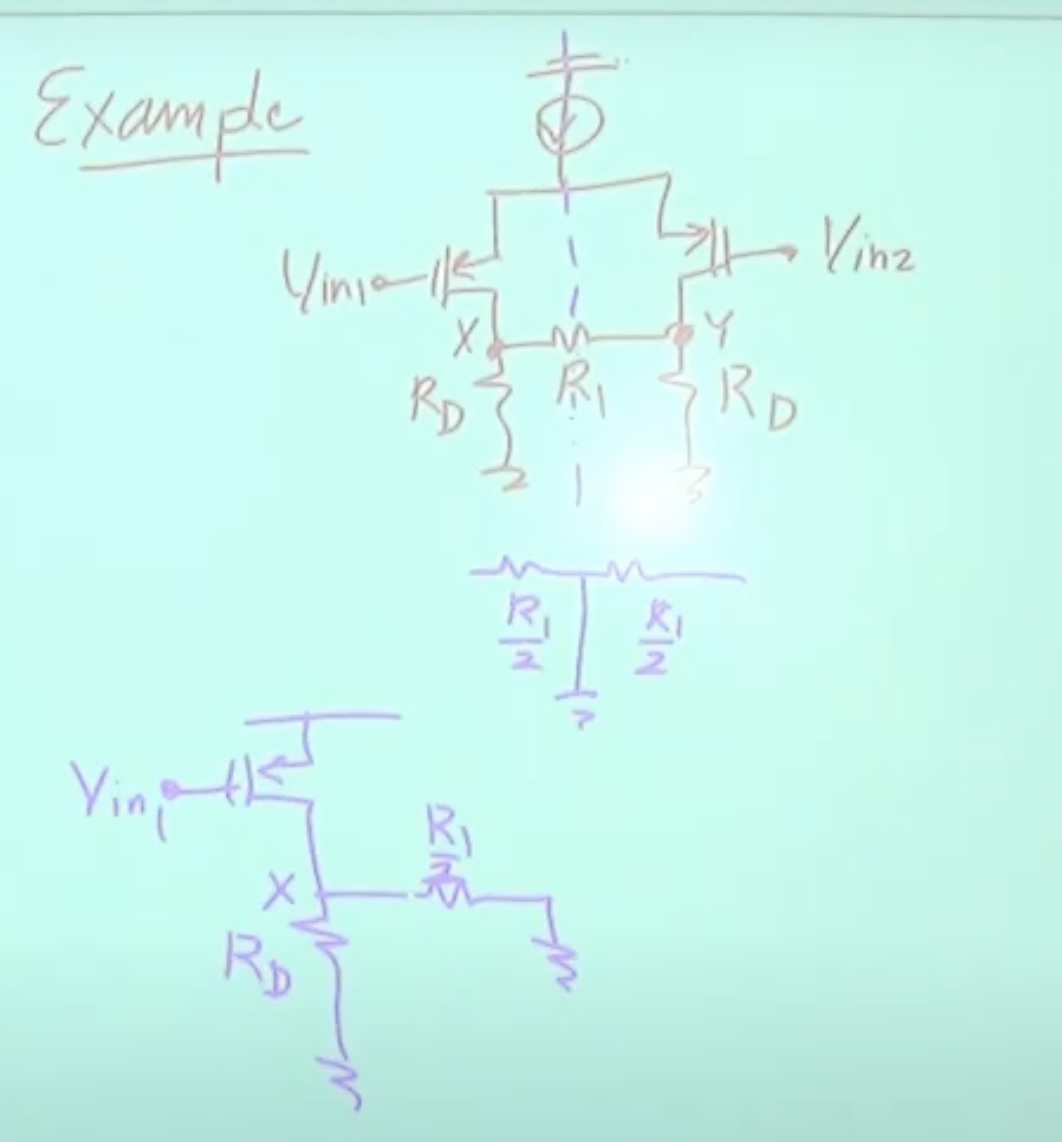 Example
Vin1
Vin2
X
Y
RD
R1
RD
R1/2
R1/2
Vin1
R1/2
X
RD